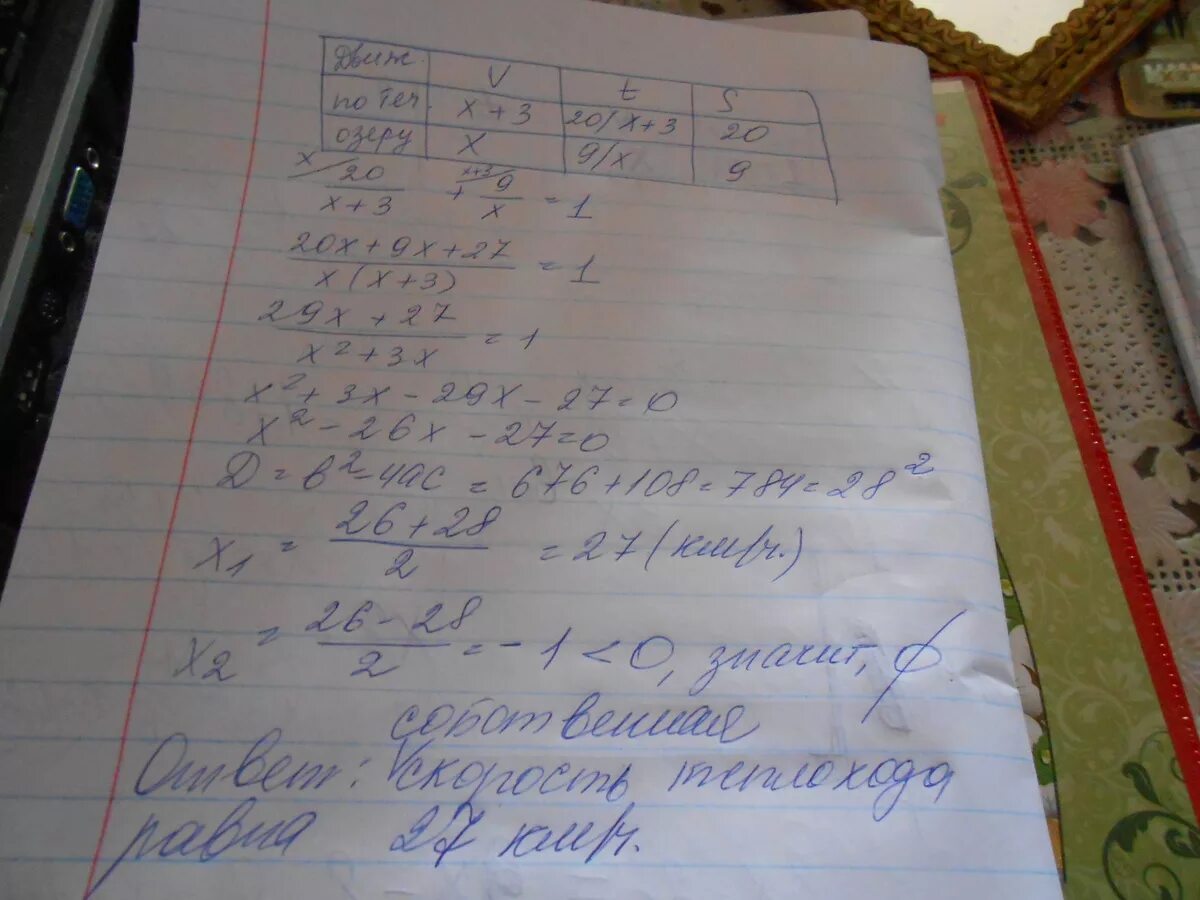 Движ. V t S
по теч. x + 3 20/x+3 20
озеру x 9/x 9
x/20/(x+3) + x+3/9/x = 1
(20x + 9x + 27)/(x(x+3)) = 1
(29x + 27)/(x² + 3x) = 1
x² + 3x - 29x - 27 = 0
x² - 26x - 27 = 0
D = в² - 4ac = 676 + 108 = 784 = 28²
x₁ = (26 + 28)/2 = 27 (км/ч.)
x₂ = (26 - 28)/2 = -1 < 0, значит, ∅
собственная
Ответ: V скорость теплохода
равна 27 км/ч.